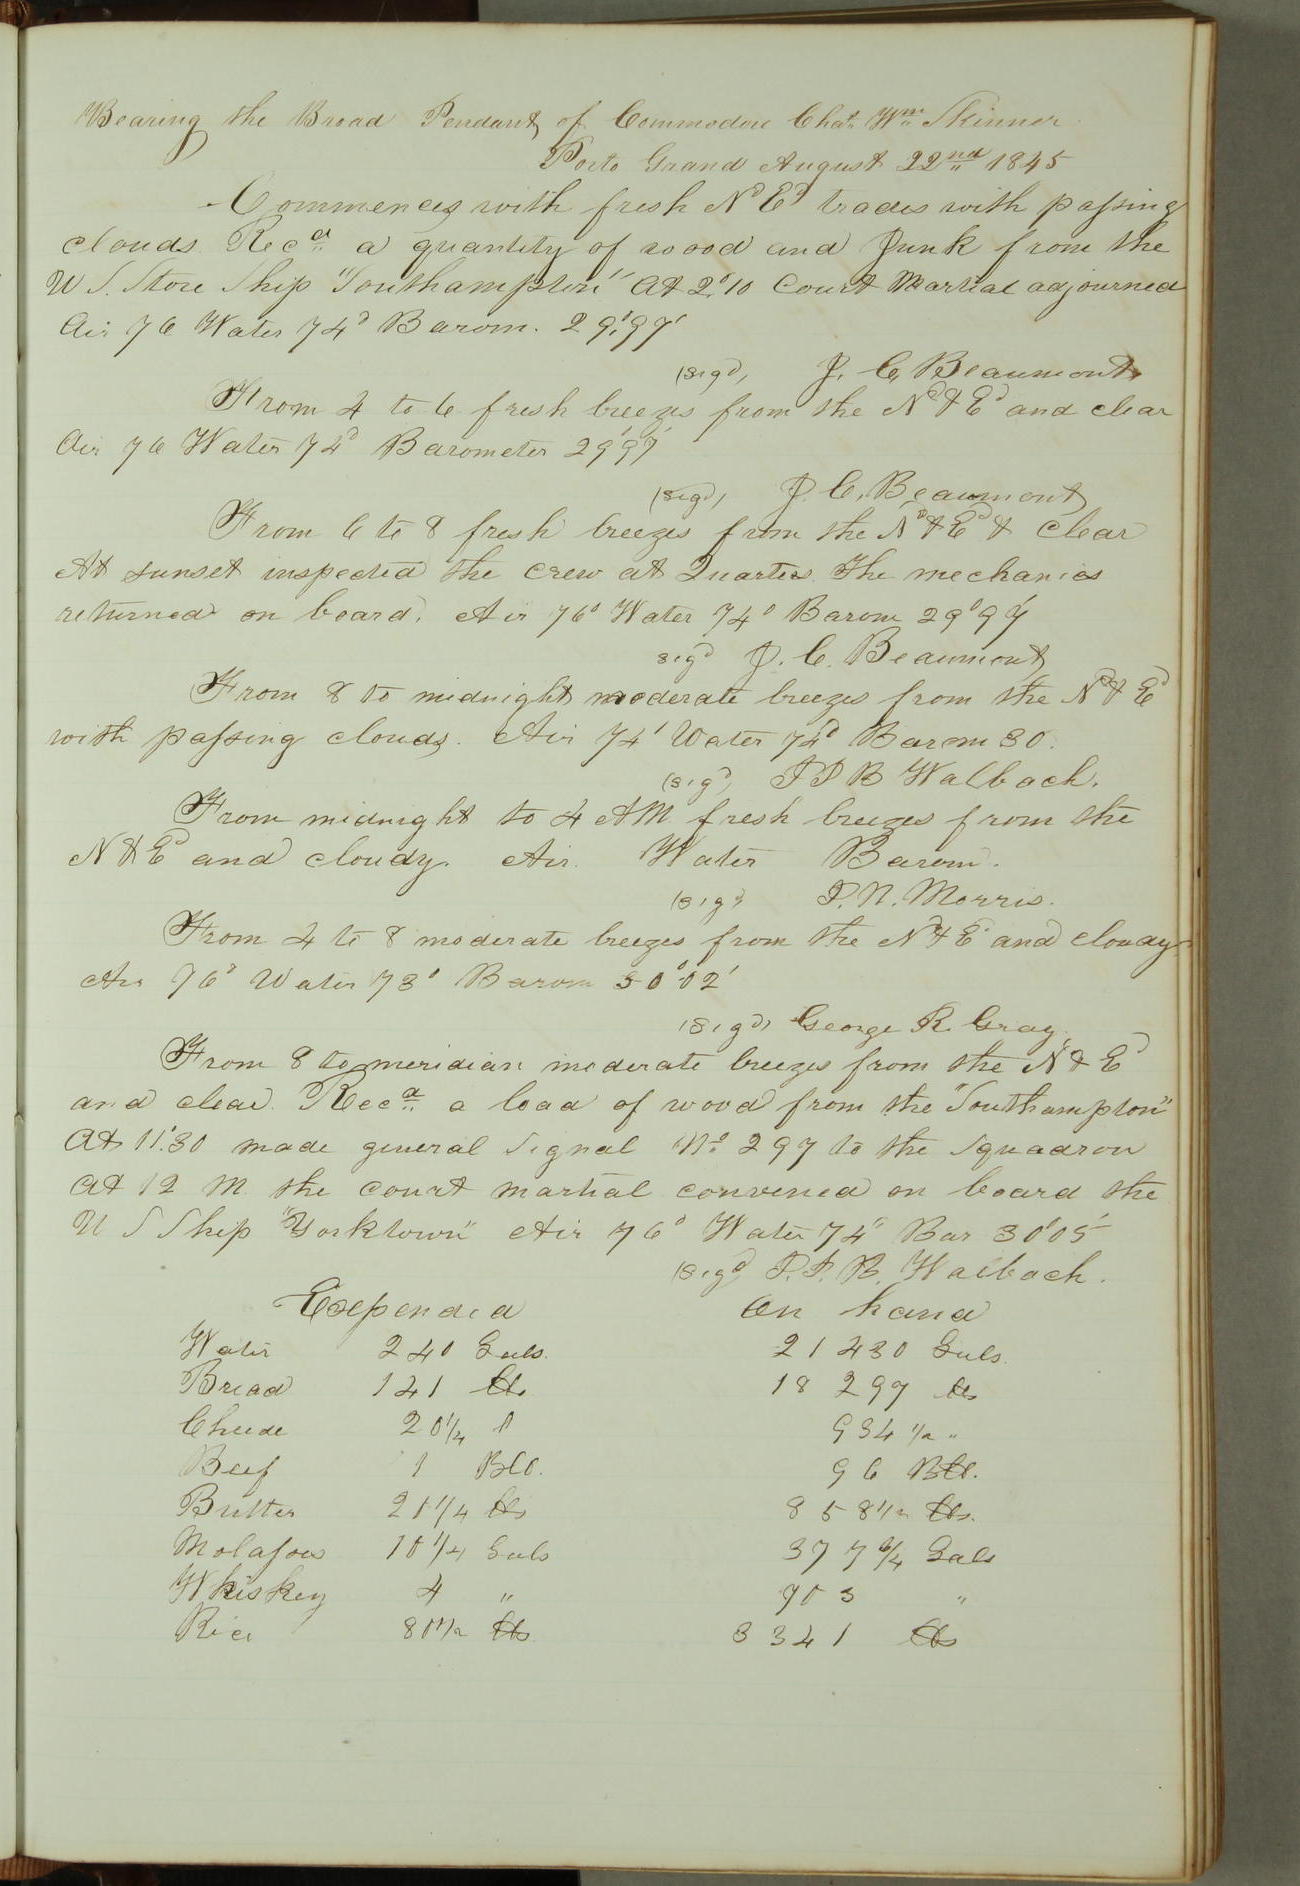 Bearing the Broad Pendant of Commodore Chas. Wm Skinner
Porto Grand August 22nd 1845
Commences with fresh Nd Ed trades with passing
clouds. Recd a quantity of wood and Junk from the
U S. Store Ship "Southampton" At 2.10 Court Martial adjourned
Air 76 Water 74° Barom. 29.97
(sigd) J. C. Beaumont
From 4 to 6 fresh breezes from the Nd & Ed and clear
Air 76 Water 74° Barometer 29°97'
(sigd) J. C. Beaumont
From 6 to 8 fresh breezes from the Nd & Ed & clear
At sunset inspected the crew at Quarters. The mechanics
returned on board. Air 76° Water 74° Barom 29°97'
sigd J. C. Beaumont
From 8 to midnight moderate breezes from the Nd & Ed
with passing clouds. Air 74' Water 74° Barom 30.
(sigd) J J B Walbach.
From midnight to 4 AM fresh breezes from the
N & Ed and cloudy. Air. Water Barom.
(sigd) P. N. Morris.
From 4 to 8 moderate breezes from the Nd & E and cloudy
Air 76° Water 73° Barom 30°02'
(sigd) George R. Gray.
From 8 to meridian moderate breezes from the N & Ed
and clear. Recd a load of wood from the "Southampton"
At 11.30 made general Signal No 297 to the Squadron
At 12 M. the court martial convened on board the
U S Ship "Yorktown" Air 76° Water 74° Bar 30°05'
(sigd) J. J. B. Walbach.
Expended On hand
Water 240 Gals. 21 430 Gals.
Bread 141 lbs 18 297 lbs
Cheese 20 1/4 " 934 1/2 "
Beef 1 Bbl. 96 Bbl.
Butter 20 1/4 lbs 858 1/2 lbs.
Molasses 10 1/4 Gals 377 Gals
Whiskey 4 " 703 "
Rice 80 1/2 lbs 3341 lbs